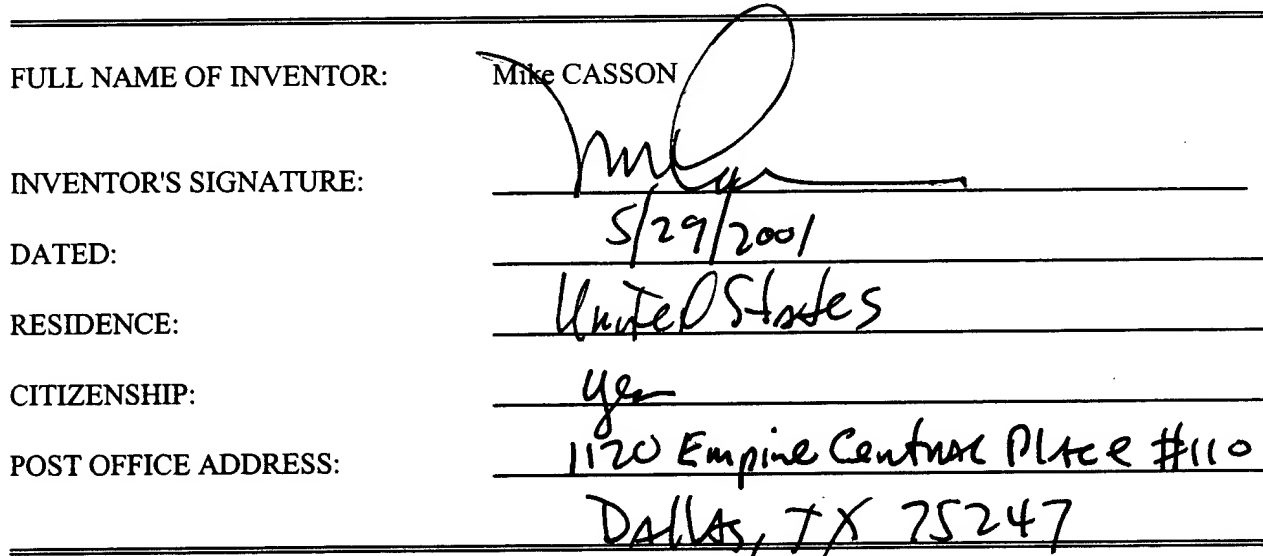 FULL NAME OF INVENTOR: Mike CASSON
INVENTOR'S SIGNATURE:
DATED: 5/29/2001
RESIDENCE: United States
CITIZENSHIP: yes
POST OFFICE ADDRESS: 1120 Empire Central Place #110
Dallas, TX 75247